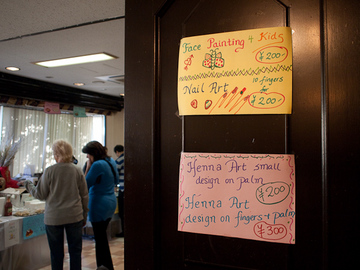 Face Painting 4 Kids
¥200
Nail Art 10 fingers
for
¥200
Henna Art small
design on palm
¥200
Henna Art
design on fingers + palm
¥300